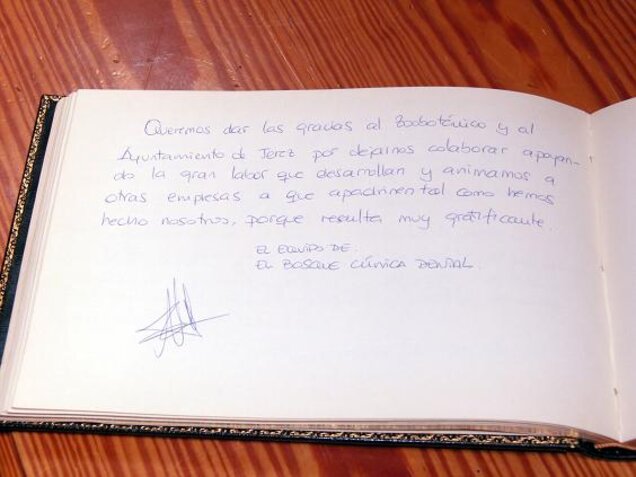 Queremos dar las gracias al Zoobotánico y al
Ayuntamiento de Jerez por dejarnos colaborar apoyan-
do la gran labor que desarrollan y animamos a
otras empresas a que apadrinen tal como hemos
hecho nosotros, porque resulta muy gratificante.
EL EQUIPO DE:
EL BOSQUE CLÍNICA DENTAL.